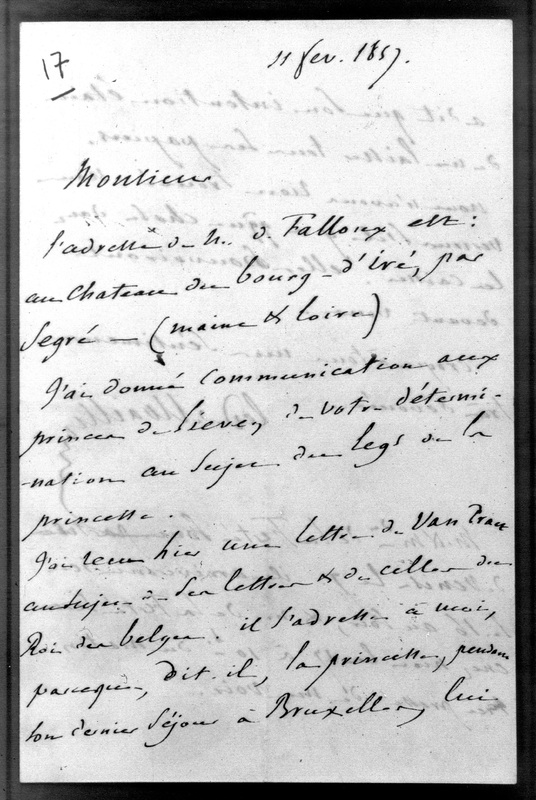 17
11 fev. 1857.
Monsieur
l'adresse de M. de Falloux est :
au Chateau du bourg-d'iré, par
Segré — (maine & loire)
J'ai donné communication aux
princes de lieven de votre détermi-
-nation au sujet du legs de la
princesse.
J'ai recu hier une lettre de Van Praet
au sujet de ses lettres & de celles du
Roi des belges. il s'adresse à moi,
parceque, dit-il, la princesse, pendant
son dernier séjour à Bruxelles, lui